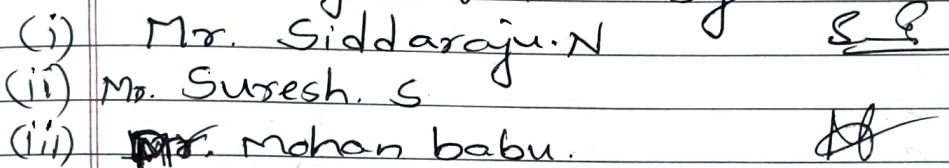 (i) Mr. Siddaraju.N
(ii) Mr. Suresh. S
(iii) Mr. Mohan babu.